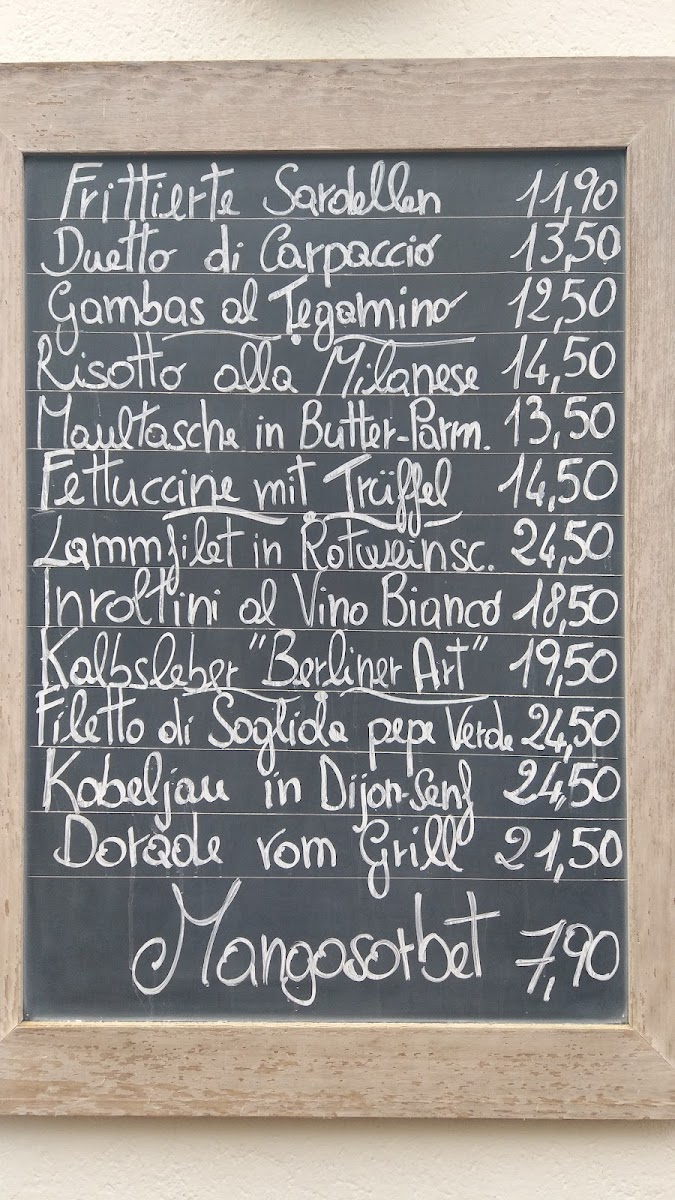 Frittierte Sardellen 11,90
Duetto di Carpaccio 13,50
Gambas al Tegamino 12,50
Risotto alla Milanese 14,50
Maultasche in Butter-Parm. 13,50
Fettuccine mit Trüffel 14,50
Lammfilet in Rotweinsc. 24,50
Involtini al Vino Bianco 18,50
Kalbsleber "Berliner Art" 19,50
Filetto di Sogliola pepe Verde 24,50
Kabeljau in Dijon-Senf 24,50
Dorade vom Grill 21,50
Mangosorbet 7,90